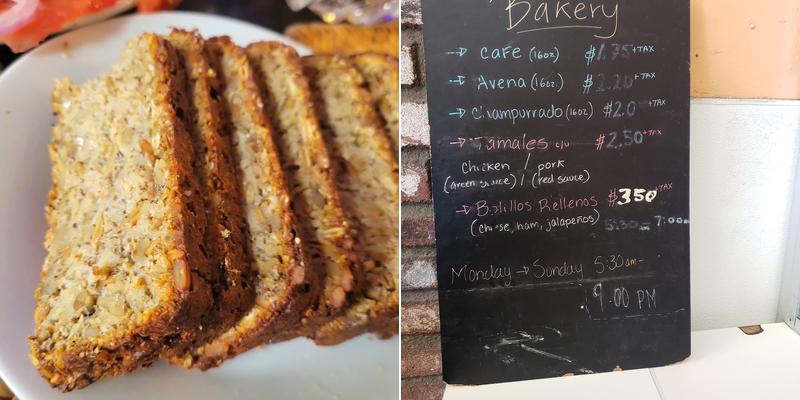 Bakery
→ CAFE (16oz) $1.75 +TAX
→ Avena (16oz.) $2.20 +TAX
→ Champurrado (16oz) $2.0 +TAX
→ Tamales c/u $2.50 +TAX
Chicken / pork
(Green sauce) / (red sauce)
→ Bolillos Rellenos $350 +TAX
(cheese, ham, jalapeños) 5:30am 7:00am
Monday → Sunday 5:30am-
9:00 PM